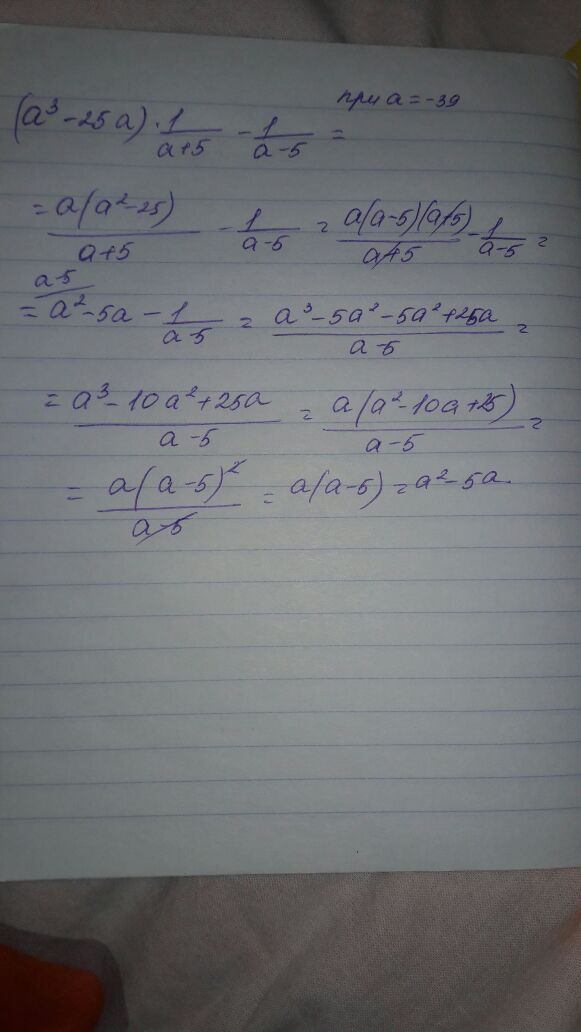 при a = -39
(a³ - 25a) · 1/(a+5) - 1/(a-5) =
= a(a² - 25)/(a+5) - 1/(a-5) = a(a-5)(a+5)/(a+5) - 1/(a-5) =
a-5
= a² - 5a - 1/(a-5) = (a³ - 5a² - 5a² + 25a)/(a-5) =
= (a³ - 10a² + 25a)/(a-5) = a(a² - 10a + 25)/(a-5) =
= a(a-5)²/(a-5) = a(a-5) = a² - 5a.